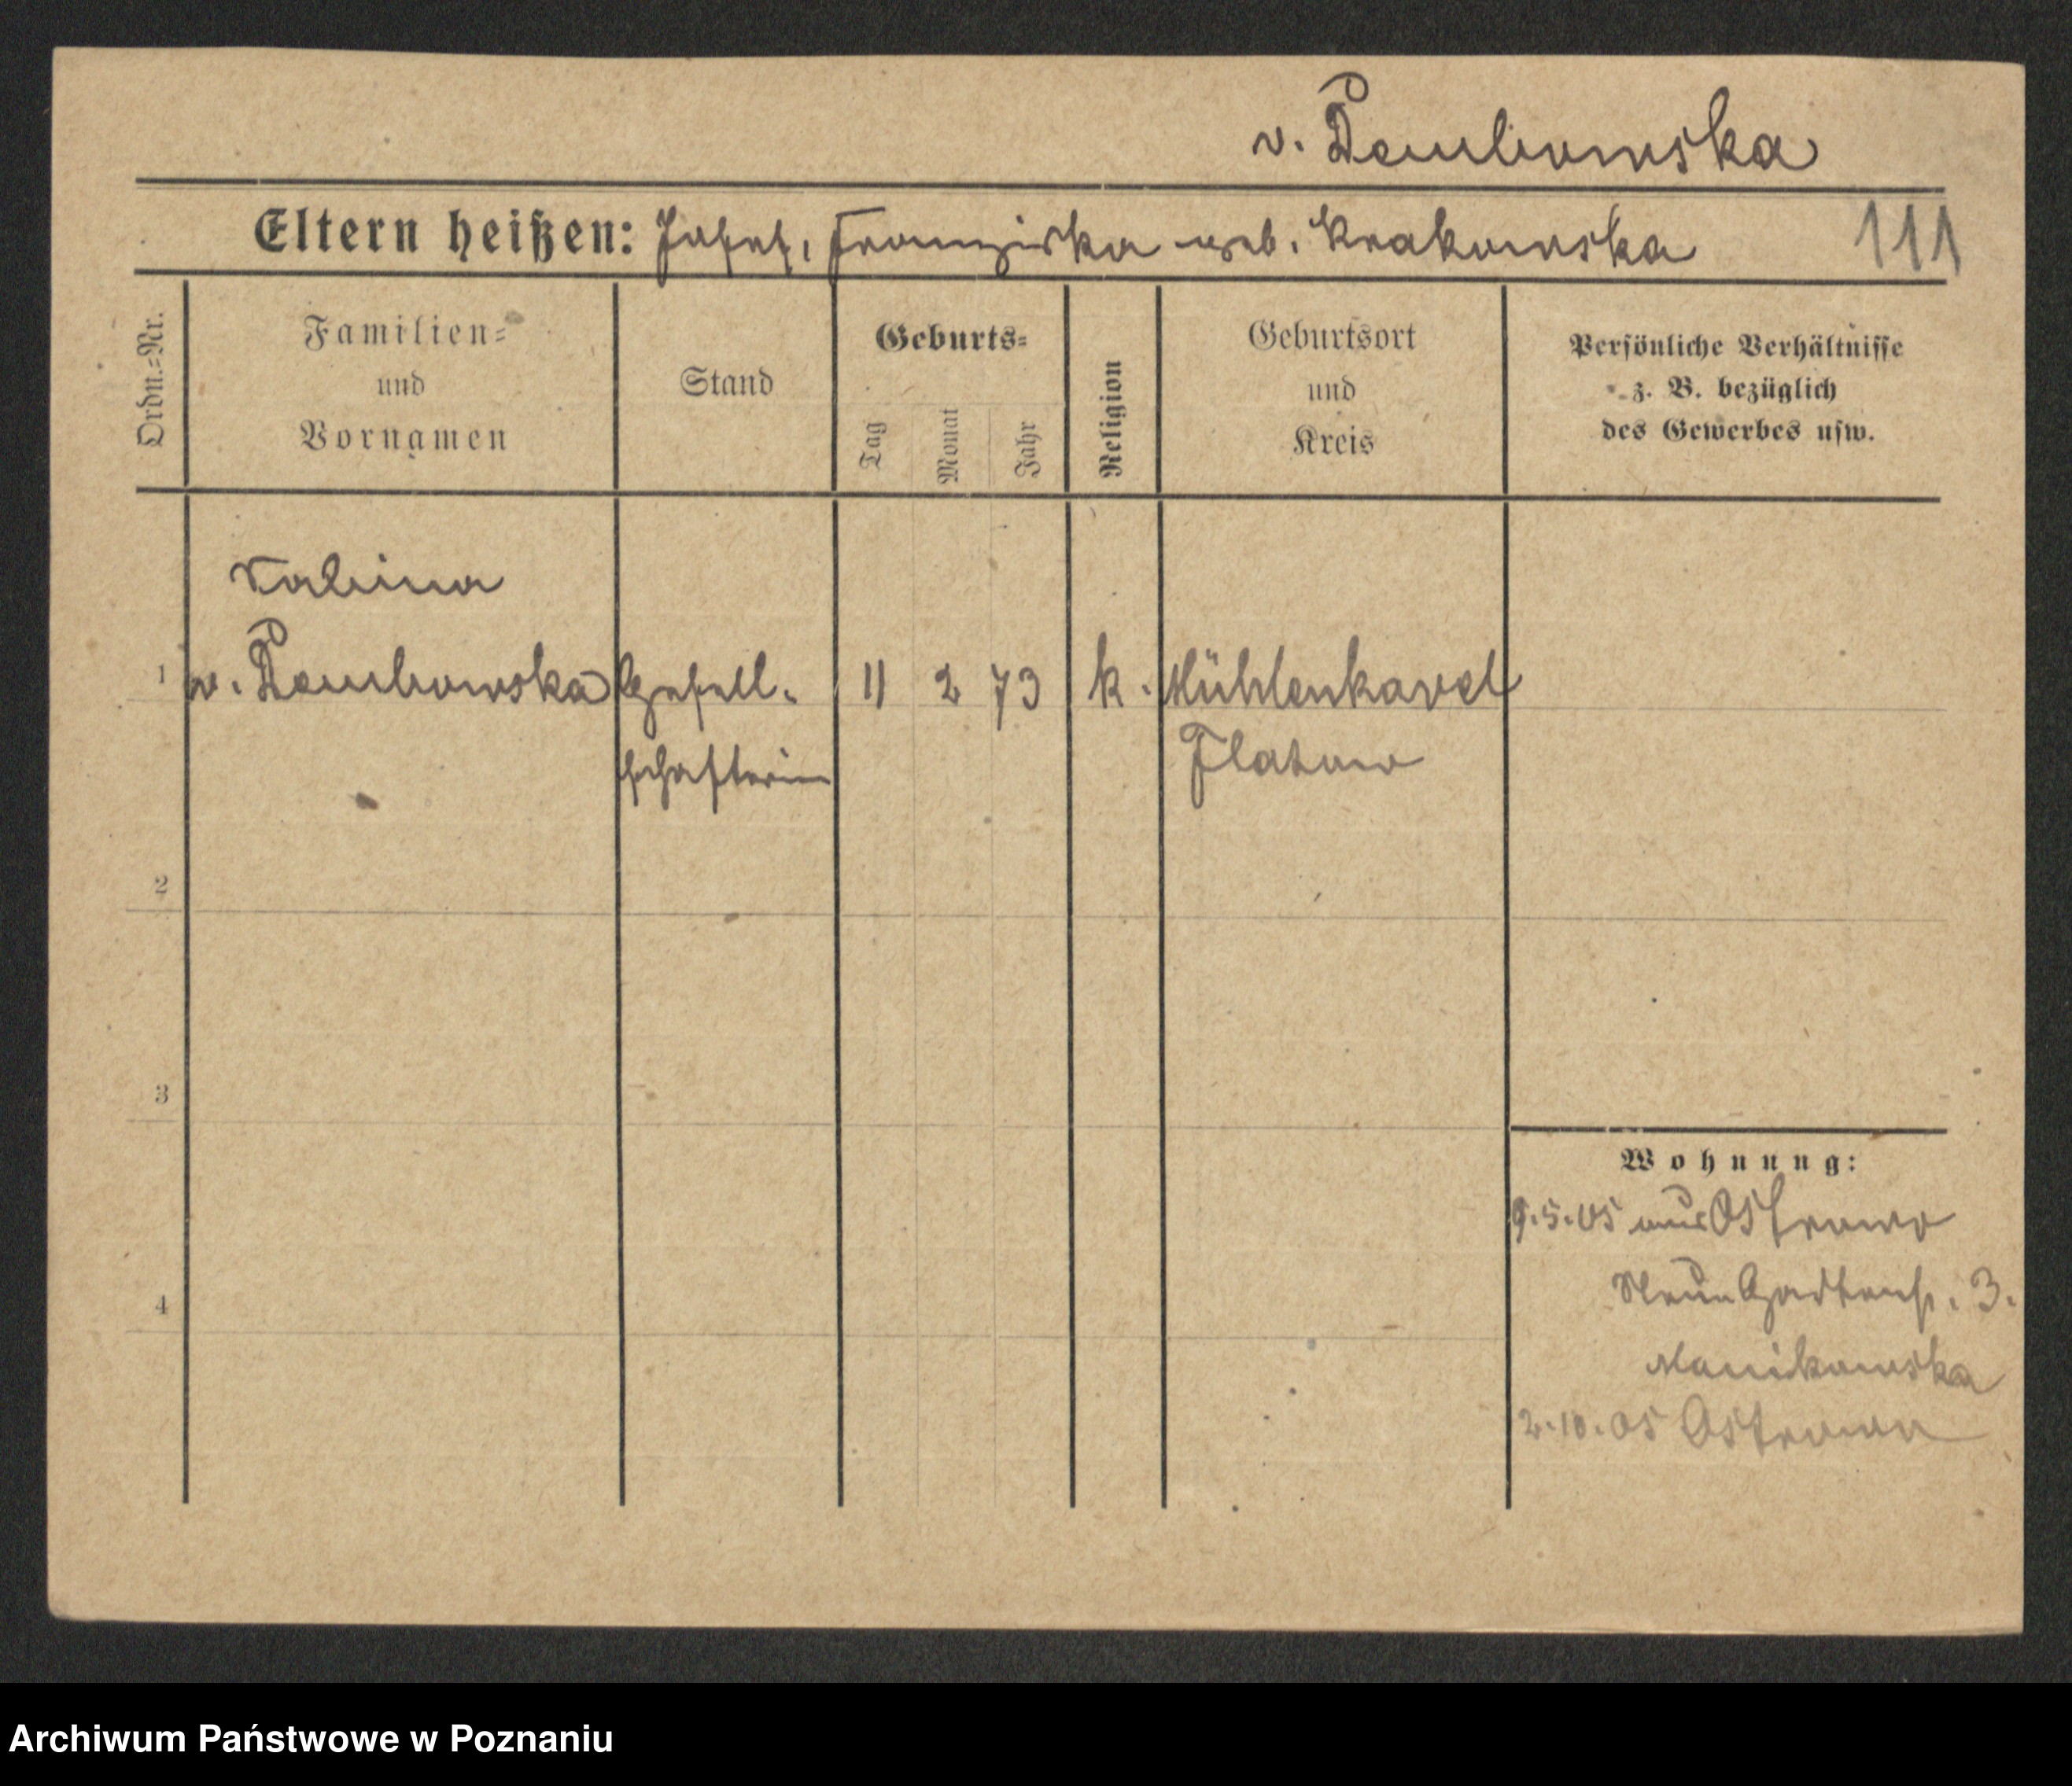 v. Dembowska
Eltern heißen: Josef, Franziska geb. Krakowska 111
Ordn.=Nr.
Familien=
und
Vornamen
Stand
Geburts=
Tag
Monat
Jahr
Religion
Geburtsort
und
Kreis
Persönliche Verhältnisse
z. B. bezüglich
des Gewerbes usw.
Sabina
1 v. Dembowska Gesell- 11 2 73 k. Mühlenkavel
schafterin Flatow
2
3
Wohnung:
9.5.05 aus Ostrowo
Neue Gartenstr. 3.
4
Manikowska
2.10.05 Ostrowo
Archiwum Państwowe w Poznaniu